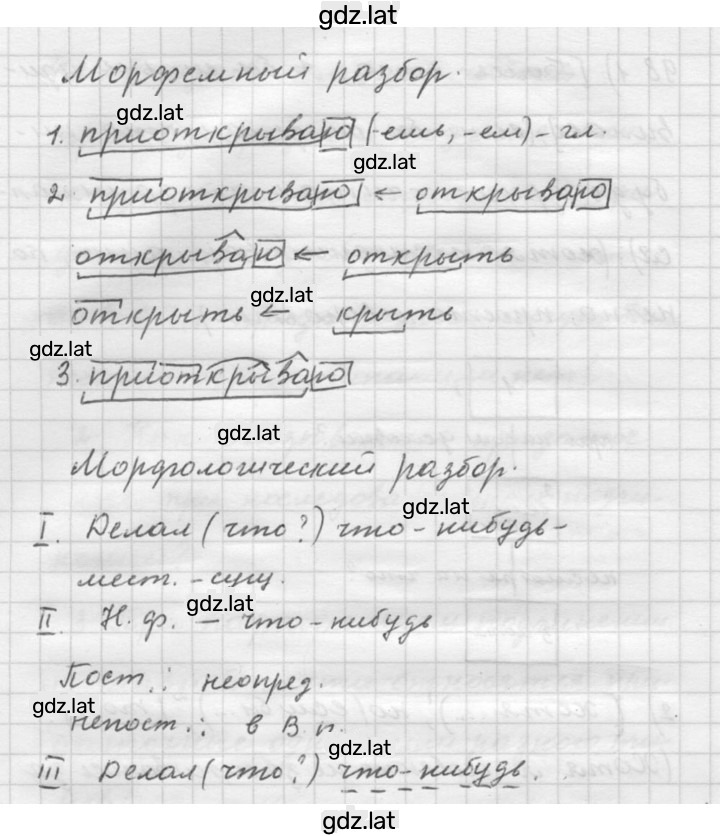 gdz.lat
Морфемный разбор.
gdz.lat
1. приоткрываю (-ешь, -ем) - гл.
gdz.lat
2. приоткрываю ← открываю
открываю ← открыть
gdz.lat
открыть ← крыть
gdz.lat
3. приоткрываю
gdz.lat
Морфологический разбор.
gdz.lat
I. Делал (что?) что-нибудь -
мест. - сущ.
gdz.lat
II. Н. ф. - что-нибудь
Пост.: неопред.
gdz.lat
непост.: в В. п.
gdz.lat
III Делал (что?) что-нибудь.
gdz.lat